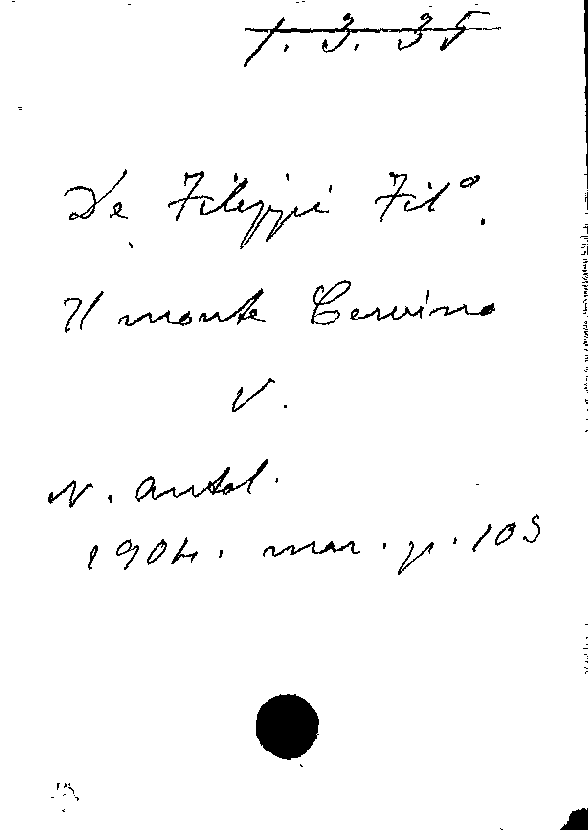 1. 3. 35
De Filippi Fil°.
Il monte Cervino
V.
N. Antol.
1904. mar. p. 105